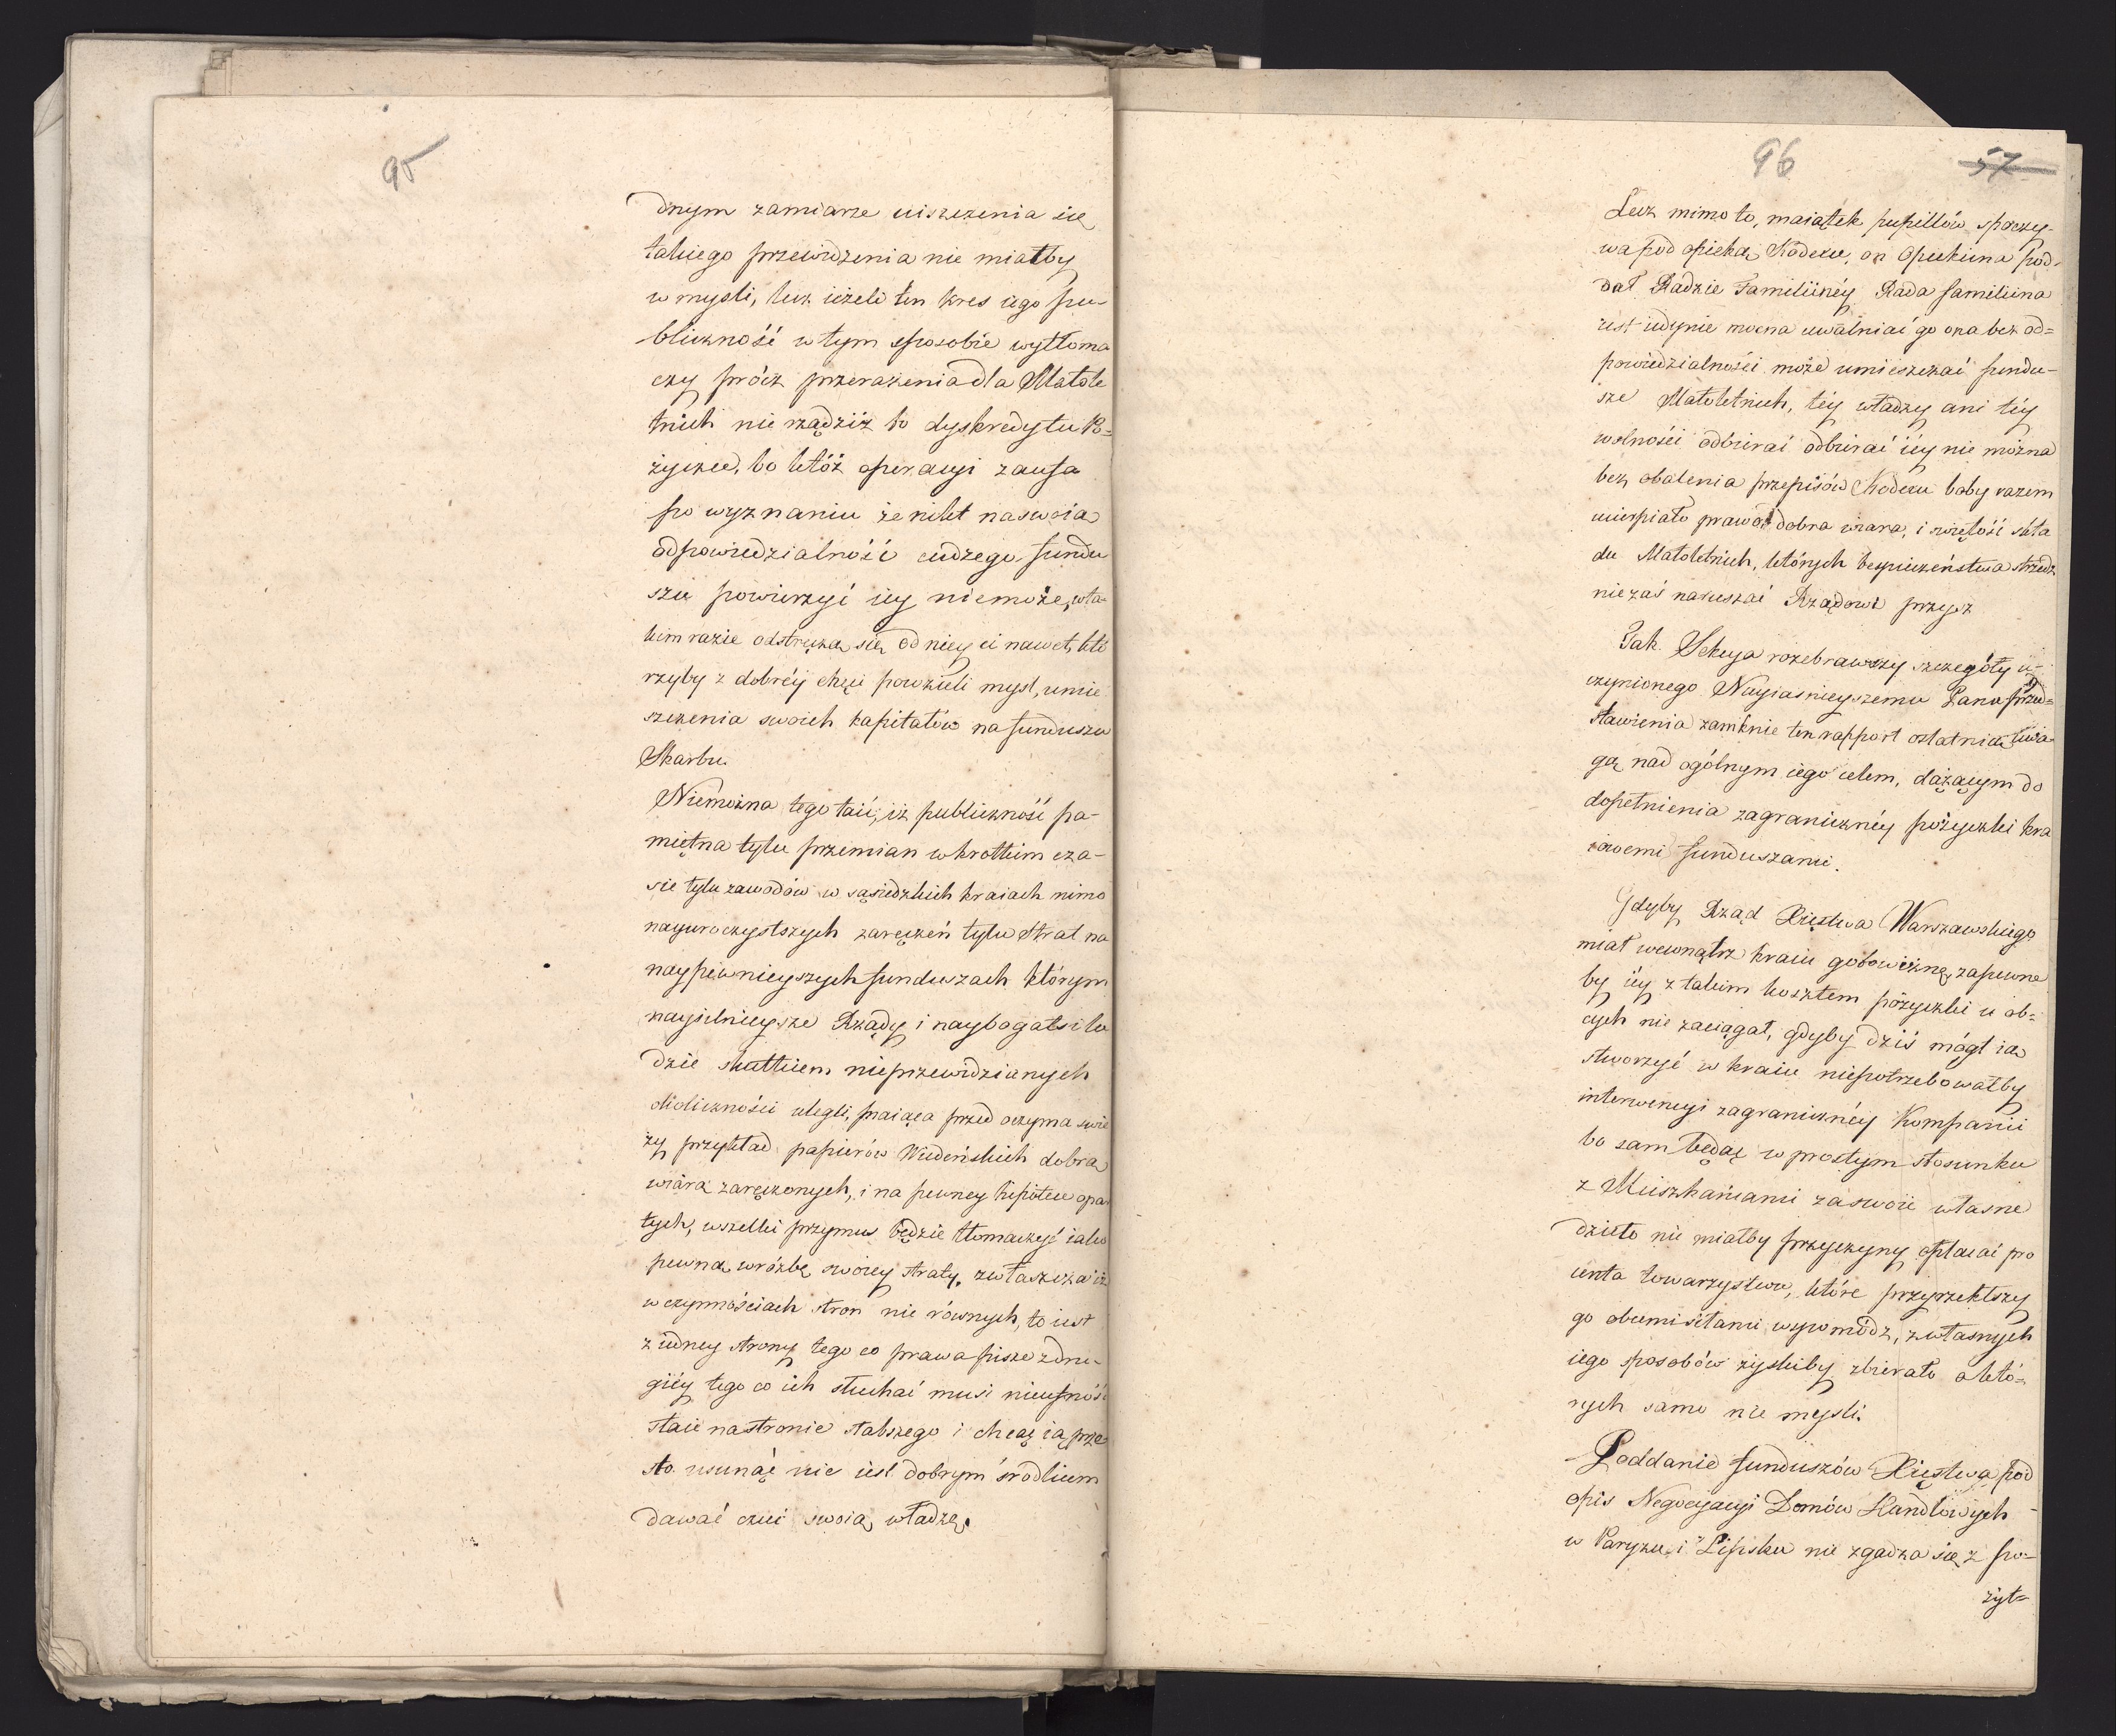 95
dnym zamiarze uiszczenia się
takiego przewidzenia nie miałby
w mysli, lecz ieżeli ten kres iego pu-
bliczność w tym sposobie wytłoma
czy prócz przerażenia dla Małole
tnich nie rządziż to dyskredytu Po=
życzce, bo któż operacyi zaufa
po wyznaniu że nikt na swoia
odpowiedzialność cudzego fundu
szu powierzyć iey niemoże, w ta-
kim razie odstręcza się od niey ci nawet, któ
rzyby z dobréy chęci powzieli mysl, umie
szczenia swoich kapitałów na funduszu
Skarbu.
Niemożna tego taić, iż publiczność pa-
miętna tylu przemian w krotkim cza-
sie tylu zawodów w sąsiedzkich kraiach nimo
nayuroczystszych zaręczeń tylu strat na
naypewnieyszych funduszach którym
naysilnieysze Rządy i naybogatsi lu
dzie skutkiem nieprzewidzianych
okoliczności ulegli, maiąca przed oczyma swie
ży przykład papierów Wiedeńskich dobra
wiara zaręczonych, i na pewney hipotece opar
tych, wszelki przymus będzie tłomaczyć iako
pewna wróżbę swoiey straty, zwłaszcza iż
w czynnościach stron nie równych, to iest
z iedney strony tego co prawa pisze z dru-
giéy tego co ich słuchać musi nieufność
staie na stronie słabszego i chcąc ią prze
sto usunąć nie iest dobrym środkiem
dawać czuć swoią władzę.
96 57
Lecz mimo to, maiątek pupillów spoczy-
wa pod opieką Kodexu, on Opiekuna pod-
dał Radzie Familiinéy Rada familiina
iest iedynie mocna uwalniać go ona bez od=
powiedzialności może umieszczać fundu-
sze Małoletnich, téy władzy ani téy
wolności odbierać odbierać iéy nie można
bez obalenia przepisów Kodexu boby razem
ucierpiało prawo dobra wiara, i swiętość skła
du Małoletnich, których bezpieczeństwa strzedz
nie zaś naruszać Rządowi przysz
Jak Sekcya rozebrawszy szczegóły u-
czynionego Nayiasnieyszemu Panu przed=
stawienia zamknie ten rapport ostatnią uwa-
gą nad ogólnym iego celem, dążącym do
dopełnienia zagranicznéy pożyczki kra
iowemi funduszami.
Gdyby Rząd Xięstwa Warszawskiego
miał wewnątrz kraiu gotowiznę, zapewne
by iéy z takim kosztem pożyczki u ob=
cych nie zaciągał, gdyby dziś mógł ia
stworzyć w kraiu niepotrzebowałby
interwencyi zagranicznéy Kompanii
bo sam będąc w prostym stosunku
z Mieszkańcami za swoie własne
dzieło nie miałby przyczyny opłacać pro
centa towarzystwu, które przyrzekłszy
go obcemi siłami wspomódz, z własnych
iego sposobów zyskiby zbierało o któ=
rych samo nie mysli.
Poddanie funduszów Xięstwa pod
opis Negocyacyi Domów Handlowych
w Paryżu i Lipsku nie zgadza się z po=
żyt=